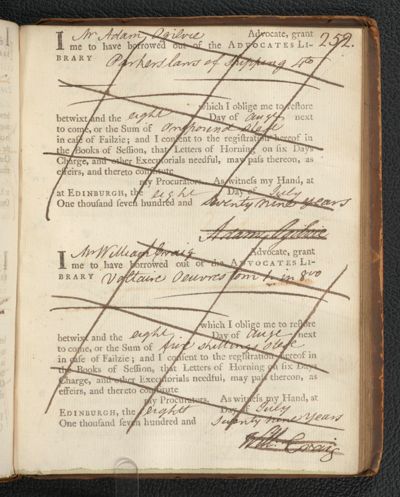 252.
I Mr Adam Ogilvie Advocate, grant
me to have borrowed out of the ADVOCATES LI-
BRARY Parkers laws of shipping 4to
which I oblige me to restore
betwixt and the eight Day of augt next
to come, or the Sum of one pound
in case of Failzie; and I consent to the registration hereof in
the Books of Session, that Letters of Horning on six Days
Charge, and other Executorials needful, may pass thereon, as
effeirs, and thereto constitute
my Procurators. As witness my Hand, at
at EDINBURGH, the eight Day of July
One thousand seven hundred and seventy nine years
Adam Ogilvie
I Mr William Craig Advocate, grant
me to have borrowed out of the ADVOCATES LI-
BRARY Voltaire Oeuvres tom 1. in 8vo
which I oblige me to restore
betwixt and the eight Day of augt next
to come, or the Sum of five shillings
in case of Failzie; and I consent to the registration hereof in
the Books of Session, that Letters of Horning on six Days
Charge, and other Executorials needful, may pass thereon, as
effeirs, and thereto constitute
my Procurators. As witness my Hand, at
EDINBURGH, the eight Day of July
One thousand seven hundred and seventy nine years
Will. Craig